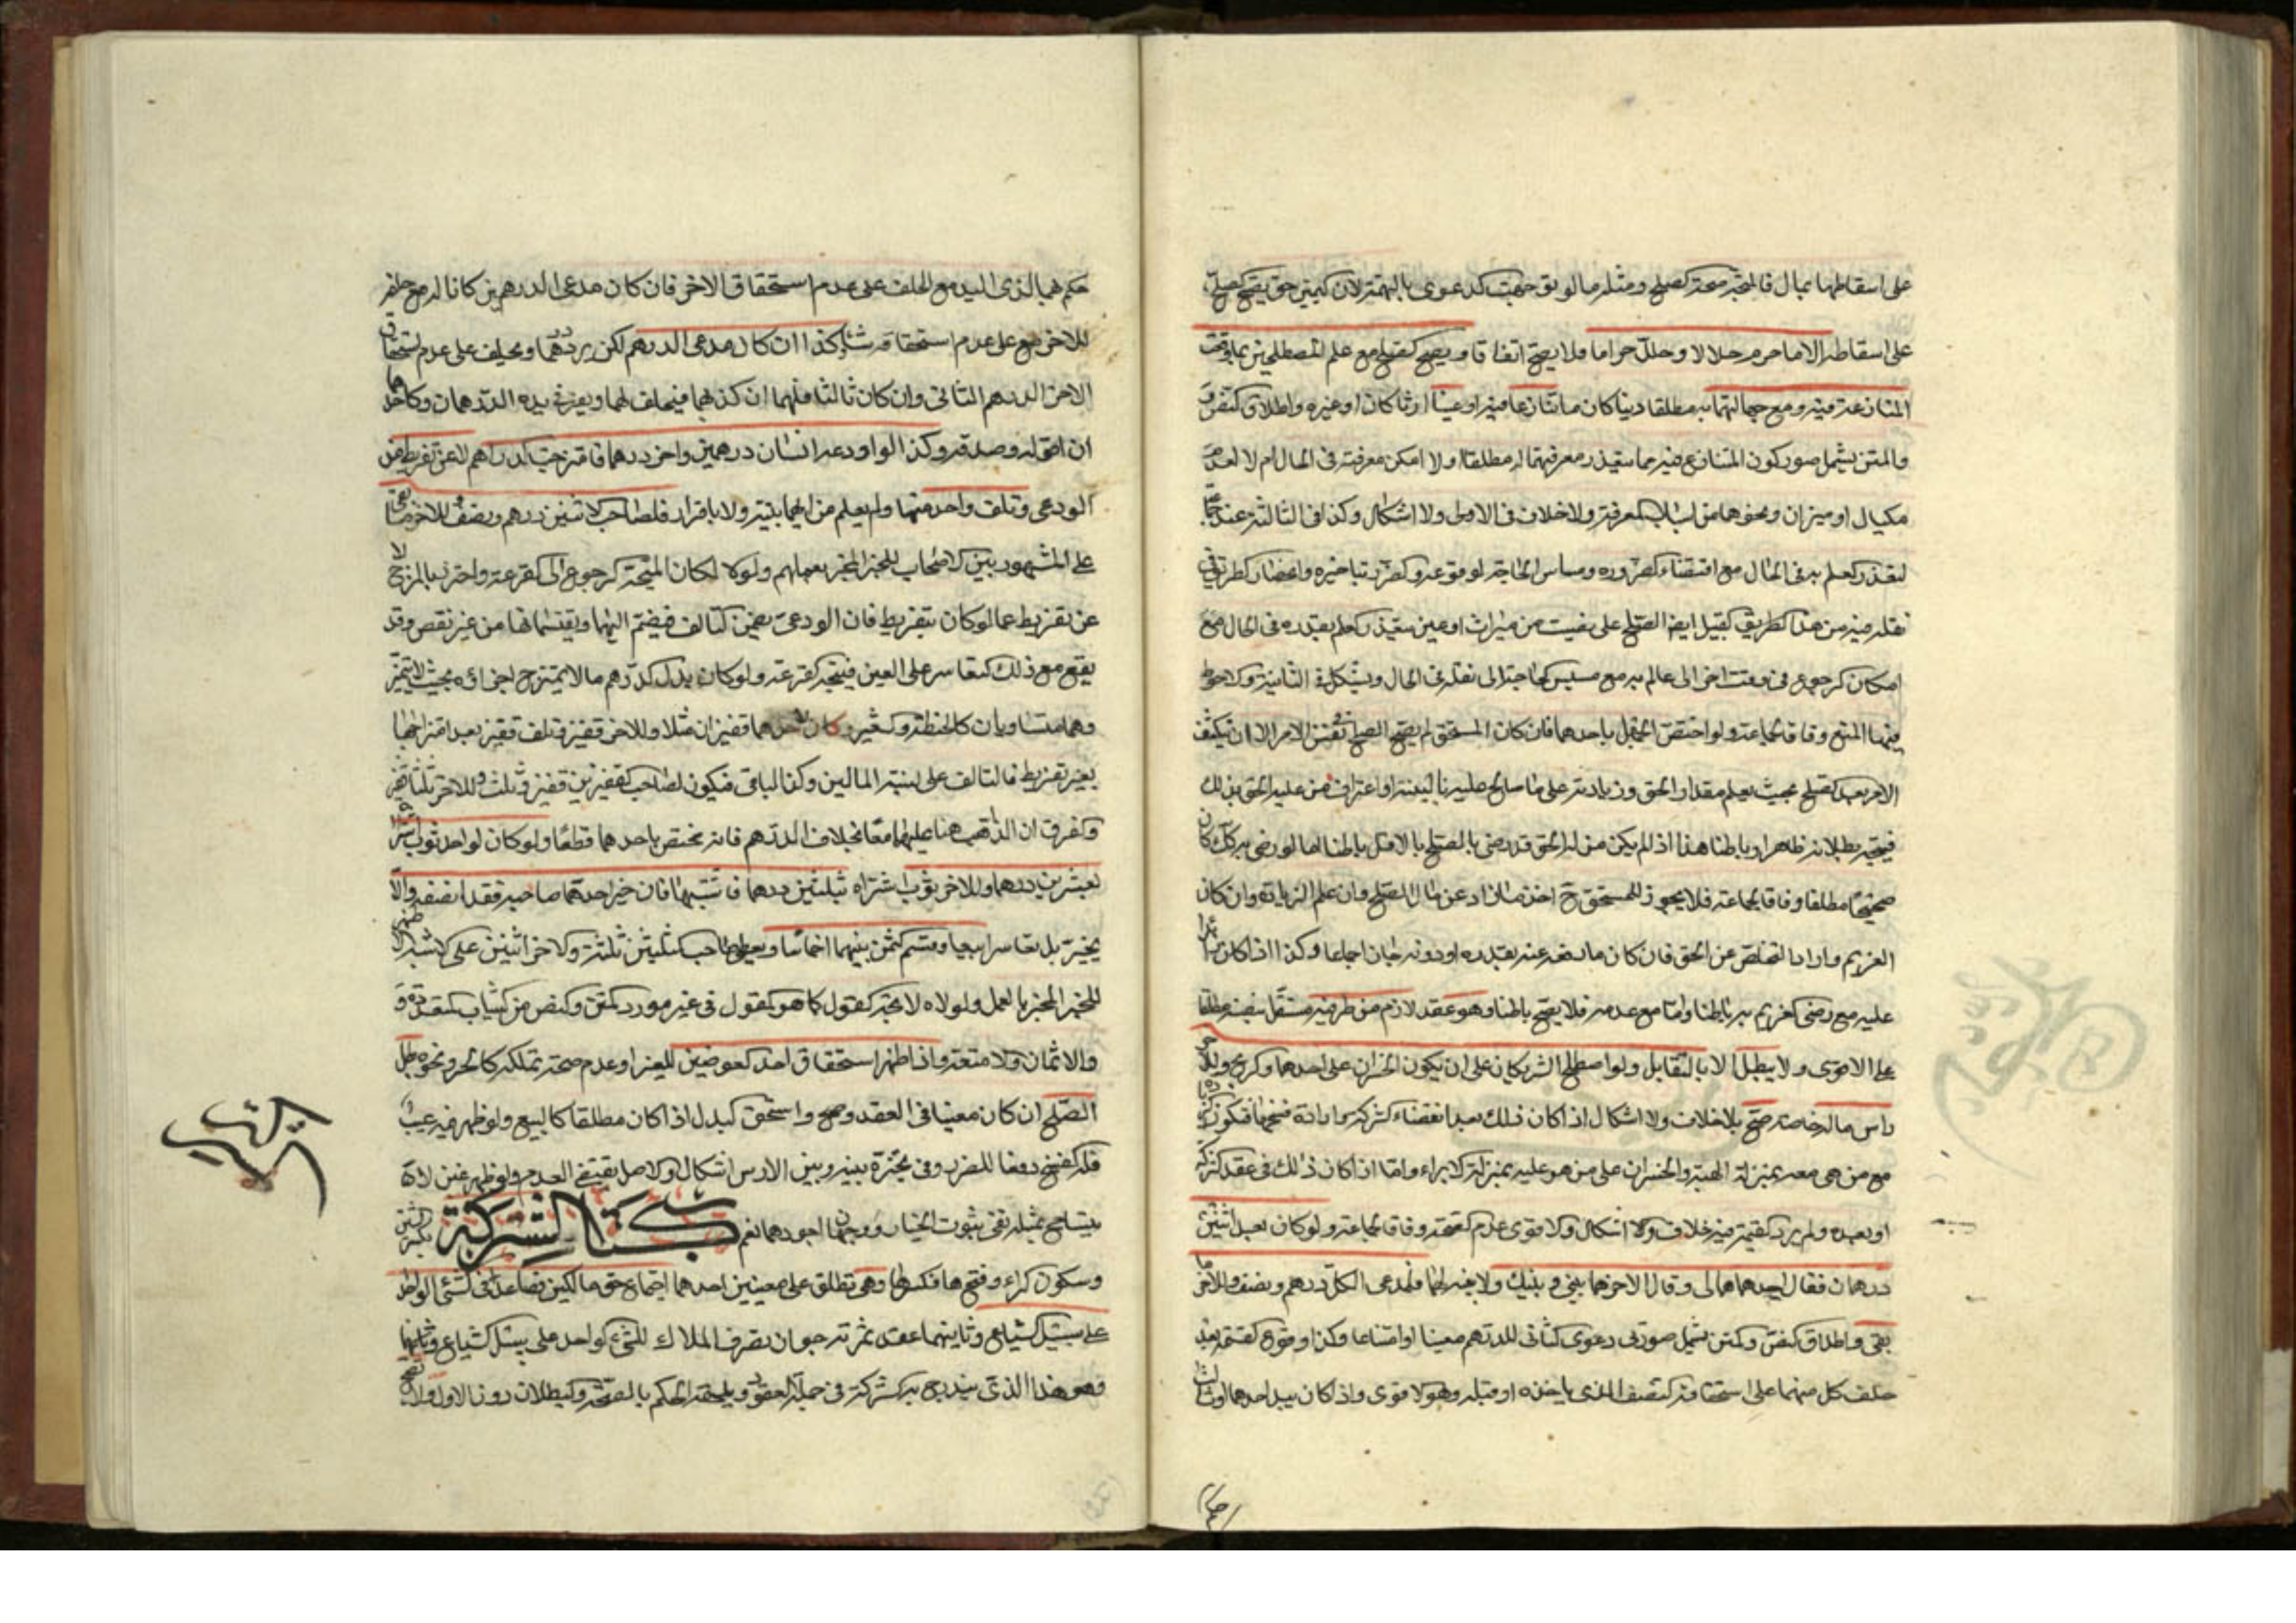 على اسقاطها بمال فالمتجه صحة الصلح ومثله مالو توجهت الدعوى بالتهمة لان اليمين حق يصح الصلح
على اسقاطه الا ما حرم حلالا وحلل حراما فلا يصح اتفاقا ويصح الصلح مع علم المصطلحين بما وقعت
المنازعة فيه ومع جهالتهما به مطلقا دينا كان ما تنازعا فيه او عينا ارثا كان او غيره واطلاق النص و
والمتن يشمل صور كون المتنازع فيه مما يتعذر معرفتهما له مطلقا او لا امكن معرفته في الحال ام لا لعدم
مكيال او ميزان ونحوهما من اسباب المعرفة ولا خلاف في الاول ولا اشكال وكذا في الثالثة عند
لتعذر العلم به في الحال مع اقتضاء الضرورة ومساس الحاجة لوقوعه والضرر بتاخيره وانحصار الطريق في
نقله فيه من هذا الطريق كقيل ايضا الصلح على نصيب من ميراث او عين يتعذر العلم بقدره في الحال مع
امكان الرجوع في وقت اخر الى عالم به مع مسيس الحاجة الى نقله في الحال ويشكل في الثانية والاحوط
فيها المنع وفاقا لجماعة ولو اختص الجهل باحدهما فان كان المستحق لم يصح الصلح في نفس الامر الا ان ينكشف
الامر بعد الصلح بحيث يعلم مقدار الحق وزيادته على ما صالح عليه بالبينة او اعتراف من عليه الحق بذلك
فيتجه بطلانه ظاهرا وباطنا هذا اذا لم يكن من له الحق قد رضي بالصلح بالاقل باطنا اما لو رضي به كك كان
صحيحا مطلقا وفاقا لجماعة فلا يجوز للمستحق ح اخذ ما زاد عن مال الصلح وان علم الزيادة وان كان
الغريم واراد التخلص عن الحق فان كان ما دفعه عنه بقدره او دونه جاز اجماعا وكذا اذا كان
عليه مع رضى الغريم به باطنا واما مع عدمه فلا يصح باطنا وهو عقد لازم من طرفيه مستقل بنفسه مطلقا
على الاقوى ولا يبطل الا بالتقايل ولو اصطلح الشريكان على ان يكون الخسران على احدهما والربح وللاخر
راس ماله خاصة صح بلا خلاف ولا اشكال اذا كان ذلك بعد انقضاء الشركة وارادة فسخها فتكون
مع من هي معه بمنزلة الهبة والخسران على من هو عليه بمنزلة الابراء واما اذا كان ذلك في عقد الشركة
او بعده ولم يرد القيمة فيه خلاف والاشكال والاقوى عدم الصحة وفاقا لجماعة ولو كان بيد اثنين
درهمان فقال احدهما هما لي وقال الاخر هما بيني وبينك ولا بينة لهما فلمدعي الكل درهم ونصف وللاخر ما
بقي واطلاق النص والمتن يشمل صورتي دعوى الثاني للدرهم معينا او مشاعا وكذا وقوع القسمة بعد
حلف كل منهما على استحقاقه النصف الذي ياخذه او قبله وهو الاقوى واذا كان بيد احدهما او ثالث
حكم بهما لذي اليد مع الحلف على عدم استحقاق الاخر فان كان مدعي الدرهمين كانا له مع حلفه
للاخر مع على عدم استحقاقه شئ وكذا ان كان مدعي الدرهم لكن يرد درهما ويحلف على عدم استحقاق
الاخر الدرهم الثاني وان كان ثالثا فلهما ان كذبهما فيحلف لهما ويقر في يده الدرهمان وكاحدهما
ان اقر له وصدقه وكذا لو اودعه انسان درهمين واخر درهما فامتزجت الدراهم لا عن تفريط من
الودعي وتلف واحد منها ولم يعلم من ايهما ببينة ولا باقرار فلصاحب الاثنين درهم ونصف وللاخر ما بقي
على المشهور بين الاصحاب للخبر المنجبر بعملهم ولولاه لكان المتجه الرجوع الى القرعة واحترز بالمزج لا
عن تفريط عما لو كان بتفريط فان الودعي يضمن التالف فيضم اليهما ويقتسمانها من غير نقص وقد
يقع مع ذلك التعاسر على العين فيتجه القرعة ولو كان بدل الدرهم مالا يمتزج اجزاؤه بحيث لا يتميز
وهما متساويان كالحنطة والشعير وكان لاحدهما قفيزان مثلا وللاخر قفيز وتلف قفيز بعد امتزاجها
بغير تفريط فالتالف على نسبة المالين وكذا الباقي فيكون لصاحب القفيزين قفيز وثلث وللاخر ثلثا قفيز
والفرق ان الذاهب هنا عليهما معا بخلاف الدرهم فانه مختص باحدهما قطعا ولو كان لواحد ثوب اشتراه
بعشرين درهما وللاخر ثوب اشتراه بثلثين درهما فاشتبها فان خير احدهما صاحبه فقد انصفه والا
يخيره بل تعاسرا بيعا وقسم الثمن بينهما اخماسا ويعطى صاحب الثلثين ثلثة والاخر اثنين على الاشهر
للخبر المنجبر بالعمل ولولاه لاتجه القول كما هو القول في غير مورد المتن والنص من الثياب المتعددة و
والاثمان والامتعة واذا ظهر استحقاق احد العوضين للغير او عدم صحة تملكه كالحر ونحوه بطل
الصلح ان كان معينا في العقد وصح واستحق البدل اذا كان مطلقا كالبيع ولو ظهر فيه عيب
فله الفسخ دفعا للضرر وفي تخيره بينه وبين الارش اشكال والاصل يقتضي العدم ولو ظهر غبن لا
يتسامح بمثله ففي ثبوت الخيار وجهان اجودهما نعم كتاب الشركة بكسر الشين
وسكون الراء وفتحها فكسرها وهي تطلق على معنيين احدهما اجتماع حق مالكين فصاعدا في الشئ الواحد
على سبيل الشياع وثانيهما عقد ثمرته جواز تصرف الملاك للشئ الواحد على سبيل الشياع
وهو هذا الذي يندرج به الشركة في جملة العقود ويلحقه الحكم بالصحة والبطلان دون الاول